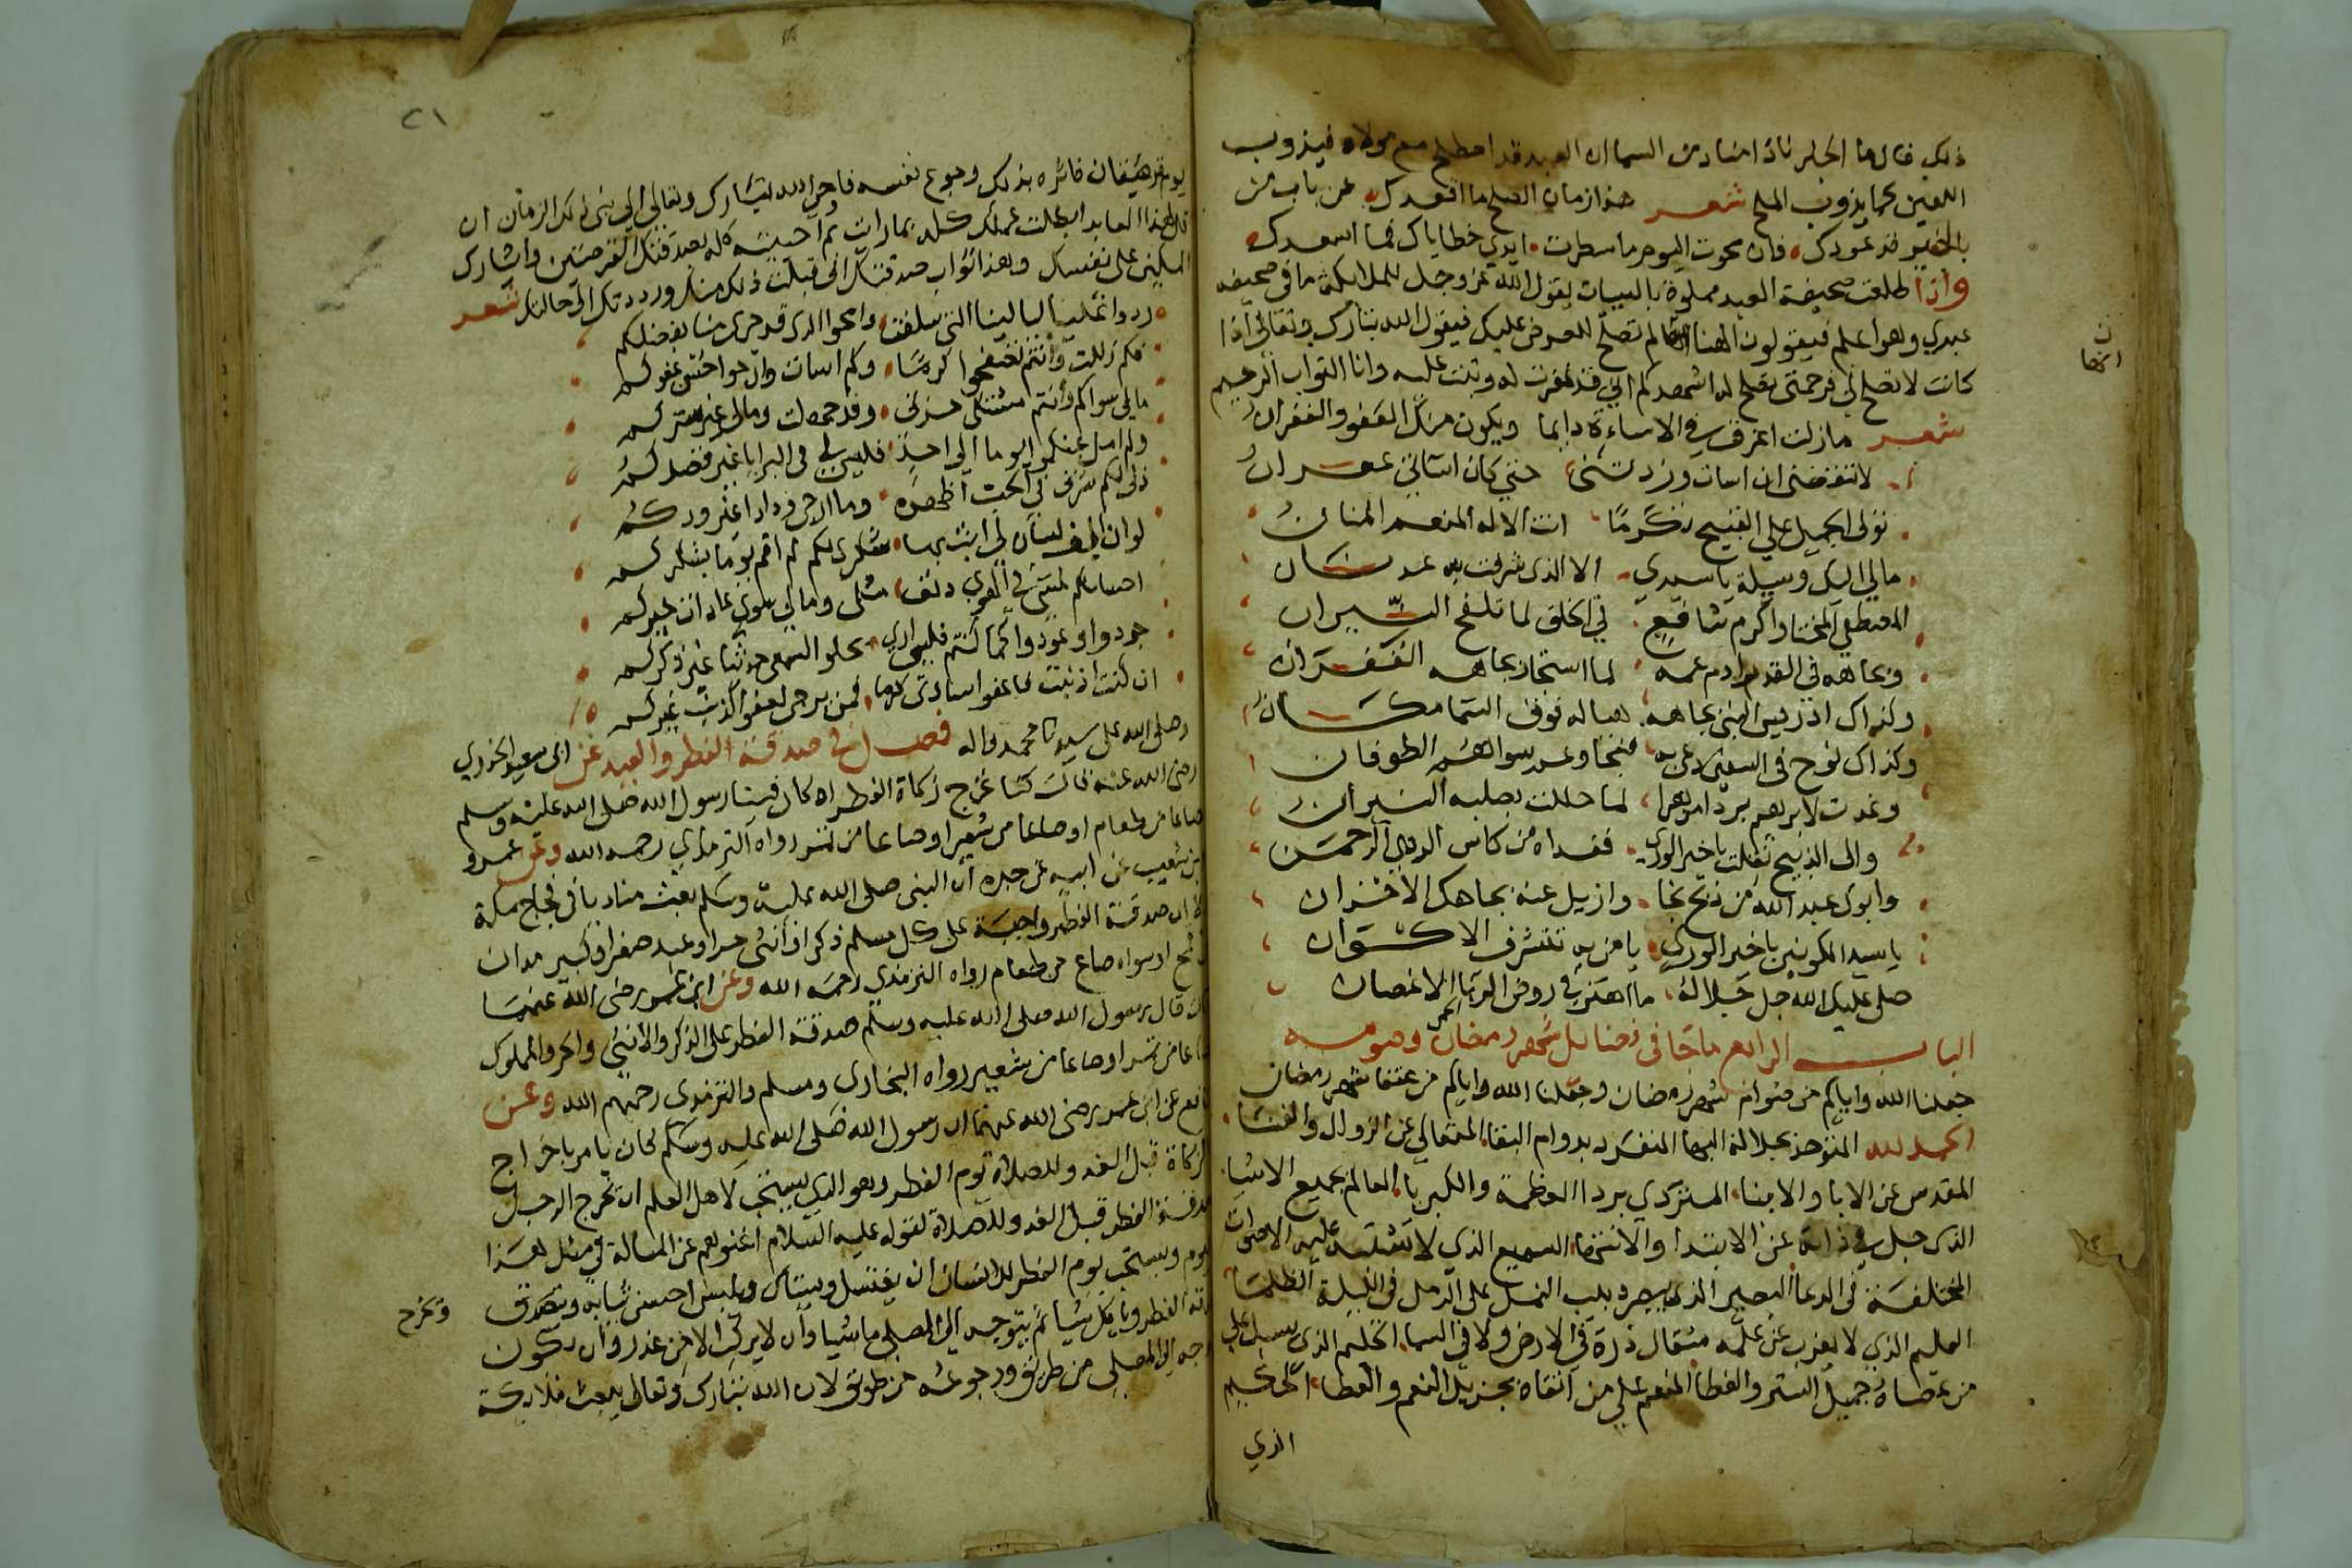 ذلك فان ما الخبر ناد امناد من السما ان العبد قد اصطلح مع مولاه فيذوب
اللعين كما يذوب الملح شعر هذا زمان الصلح ما اقعدك عن باب من
بالخير قد عودك فان محوت اليوم ما سطرت ايدي خطاياك فما اسعدك
واذا طلعت صحيفة العبد مملوة بالسيات يقول الله عز وجل للملائكة ما في صحيفة
عبدي وهو اعلم فيقولون الهنا انها لم تصلح للعرض عليك فيقول الله تبارك وتعالى اذا
كانت لا تصلح لي فرحمتي تصلح له اشهدكم اني قد غفرت له وتبت عليه وانا التواب الرحيم
شعر مازلت اغرق في الاساءة دايما ويكون منك العفو والغفران
لا تنقصني ان اسات وزدتني حتى كان اساتي
تولى الجميل على القبيح تكرما انت الاله المنعم المنان
مالي اليك وسيلة يا سيدي الا الذي شرفت به عدنان
المصطفى المختار اكرم شافع في الخلق لما تلفح النيران
وبجاهه في القدم ادم عمه لما استجار بجاهه الغفران
وكذاك ادريس النبي بجاهه هناله فوق السما مكان
وكذاك نوح في السفين دعى به فنجا وعم سواهم الطوفان
وغدت لابرهيم بردا امرها لما حللت بصلبه النيران
والى الذبيح نقلت يا خير الورى ففداه من كاس الردى الرحمن
وابوك عبد الله من ذبح نجا وازيل عنه بجاهك الاحزان
يا سيد الكونين يا خير الورى يا من به تتشرف الاكوان
صلى عليك الله جل جلاله ما اهتز في روض الربا الاغصان
الباب الرابع ماجا في فضائل شهر رمضان وصومه
جعلنا الله واياكم من صوام شهر رمضان وجعلنا الله واياكم من عتقا شهر رمضان
الحمد لله المتوحد بجلالة البها المنفرد بدوام البقا المتعالي عن الزوال والفنا
المقدس عن الابا والابنا المتردي بردا العظمة والكبريا العالم بجميع الاشيا
الذي جل في ذاته عن الابتدا والانتها السميع الذي لا تشتبه عليه الاصوات
المختلفة في الدعا البصير الذي يبصر دبيب النمل على الرمل في الليلة الظلما
العليم الذي لا يعزب عن علمه مثقال ذرة في الارض ولا في السما الحليم الذي يسبل على
من عصاه جميل الستر والغطا المنعم على من اتقاه بجزيل النعم والعطا الحكيم
الذي
ن
انها
٢١
فاثره بذلك وجوع نفسه فاوحى الله تبارك وتعالى الى نبي ذلك الزمان ان
قل لهذا العابد ابطلت عملك كله بما رات ثم احييته كله بصدقتك القرصتين وايثارك
المسكين على نفسك وهذا ثواب صدقتك اني قبلت ذلك منك ورددتك الى حالتك شعر
ردوا علينا ليالينا التي سلفت وامحوا الذي قد جرى منا بفضلكم
فكم زللت وانتم تصفحوا كرما وكم اسات وارجوا حسن عفوكم
مالي سواكم وانتم مشتكى حزني وقد جهلت ومالي غير ستركم
ولم امل عنكم يوما الى احد فليس لي في البرايا غير فضلكم
ذلي لكم شرف في الحب اظهره وما ارجي ودادا غير ودكم
لو ان الف لسان لي ابث بها شكري لكم لم اقم يوما بشكركم
احسانكم لمسيء في الهوى دنف مثلى ومالي سوى عادات خيركم
جودوا وعودوا كما كنتم فليس ارى يحلو السمعي حديثا غير ذكركم
ان كنت اذنبت فاعفوا سادتي كرما فمن يرجى لعفو الذنب غيركم
وصلى الله على سيدنا محمد واله فصل في صدقة الفطر والعيد عن ابي سعيد الخدري
رضي الله عنه قال كنا نخرج زكاة الفطر اذ كان فينا رسول الله صلى الله عليه وسلم
صاعا من طعام او صاعا من شعير او صاعا من تمر رواه الترمذي رحمه الله وعن عمرو
بن شعيب عن ابيه عن جده ان النبي صلى الله عليه وسلم بعث مناديا في فجاج مكة
الا ان صدقة الفطر واجبة على كل مسلم ذكر او انثى حر او عبد صغير او كبير مدان
من قمح او سواه صاع من طعام رواه الترمذي رحمه الله وعن ابن عمر رضي الله عنهما
قال قال رسول الله صلى الله عليه وسلم صدقة الفطر على الذكر والانثى والحر والمملوك
صاعا من تمر او صاعا من شعير رواه البخاري ومسلم والترمذي رحمهم الله وعن
نافع عن ابن عمر رضي الله عنهما ان رسول الله صلى الله عليه وسلم كان يامر باخراج
الزكاة قبل الغدو للصلاة يوم الفطر وهو الذي يستحب لاهل العلم ان يخرج الرجل
صدقة الفطر قبل الغدو للصلاة لقوله عليه السلام اغنوهم عن المسالة في مثل هذا
اليوم ويستحب يوم الفطر للانسان ان يغتسل ويستاك ويلبس احسن ثيابه ويتصدق
الفطر وياكل شيا ثم يتوجه الى المصلى ماشيا وان لا يركب الا من عذر وان يكون
الى المصلى من طريق ورجوعه من طريق لان الله تبارك وتعالى يبعث ملائكة
ويخرج